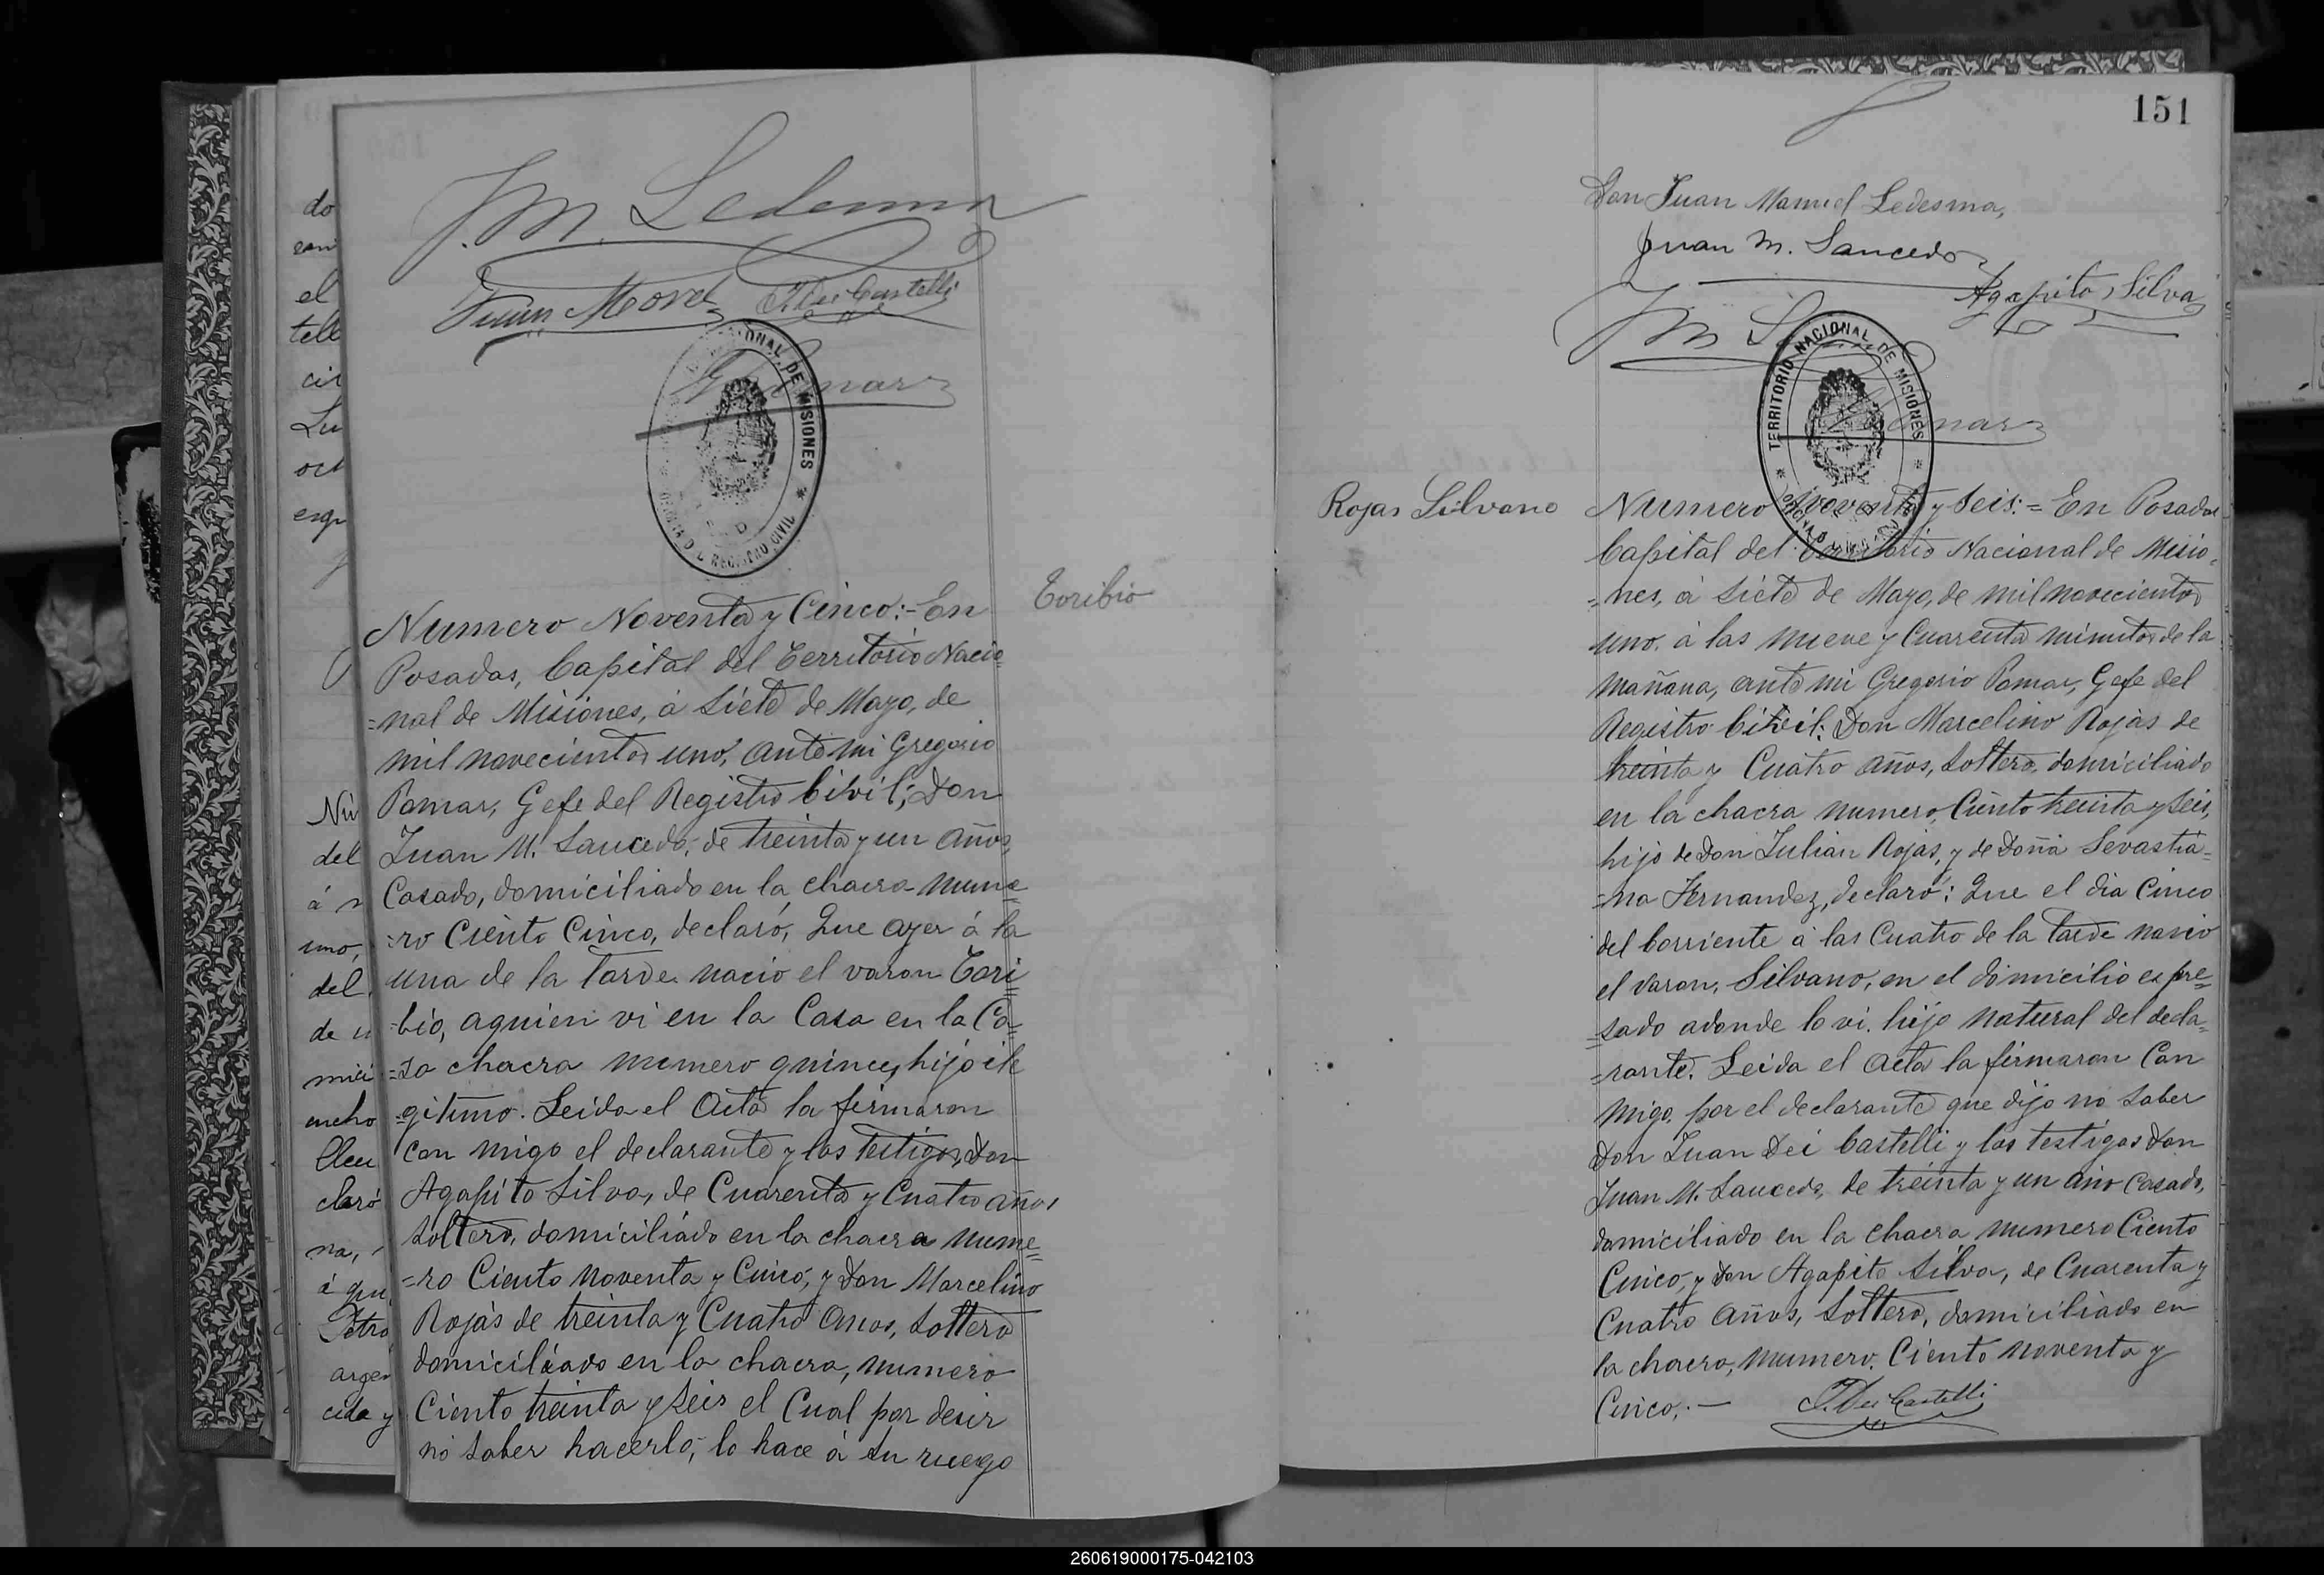 J. M. Ledesma
Juan Morel J. Dei Castelli
G. Pomar
TERRITORIO NACIONAL DE MISIONES
REGISTRO CIVIL
Numero Noventa y Cinco:- En
Posadas, Capital del Territorio Nacio=
=nal de Misiones, á Siete de Mayo, de
mil novecientos uno, ante mi Gregorio
Pomar, Gefe del Registro Civil; Don
Juan M. Saucedo, de treinta y un años,
Casado, domiciliado en la chacra nume=
=ro Ciento Cinco, declaró, Que ayer á la
una de la tarde nacio el varon Tori=
=bio, aquien vi en la Casa en la Ca=
=sa chacra numero quince, hijo le
=gitimo. Leida el Acta la firmaron
con migo el declarante y los testigos, Don
Agapito Silva, de Cuarenta y Cuatro años
Soltero, domiciliado en la chacra nume=
=ro Ciento noventa y Cinco, y Don Marcelino
Rojas de treinta y Cuatro Años, Soltero
domiciliado en la chacra, numero
Ciento treinta y Seis el Cual por desir
no saber hacerlo, lo hace á su ruego
Toribio
do
el
Lu
Nú
del
uno,
del
de
ciló y
151
Don Juan Manuel Ledesma,
Juan M. Saucedo
Agapito Silva
J M
TERRITORIO NACIONAL DE MISIONES
Pomar
Rojas Silvano
Numero Noventa y Seis:= En Posadas
Capital del Territorio Nacional de Misio=
=nes, á Siete de Mayo, de mil novecientos
uno. á las nueve y Cuarenta minutos de la
mañana, ante mi Gregorio Pomar, Gefe del
Registro Civil: Don Marcelino Rojas de
treinta y Cuatro años, Soltero, domiciliado
en la chacra numero, Ciento treinta y Seis,
hijo de Don Julian Rojas, y de Doña Sevastia=
=na Fernandez, declaró: Que el dia Cinco
del Corriente á las Cuatro de la tarde nacio
el varon, Silvano, en el domicilio espre=
=sado adonde lo vi. hijo natural del decla=
=rante. Leida el Acta la firmaron Con
migo, por el declarante que dijo no saber
Don Juan Dei Castelli y los testigos Don
Juan M. Saucedo, de treinta y un año Casado,
domiciliado en la chacra numero Ciento
Cinco, y Don Agapito Silva, de Cuarenta y
Cuatro Años, Soltero, domiciliado en
la chacra, numero. Ciento noventa y
Cinco,.-
J. Dei Castelli
260619000175-042103